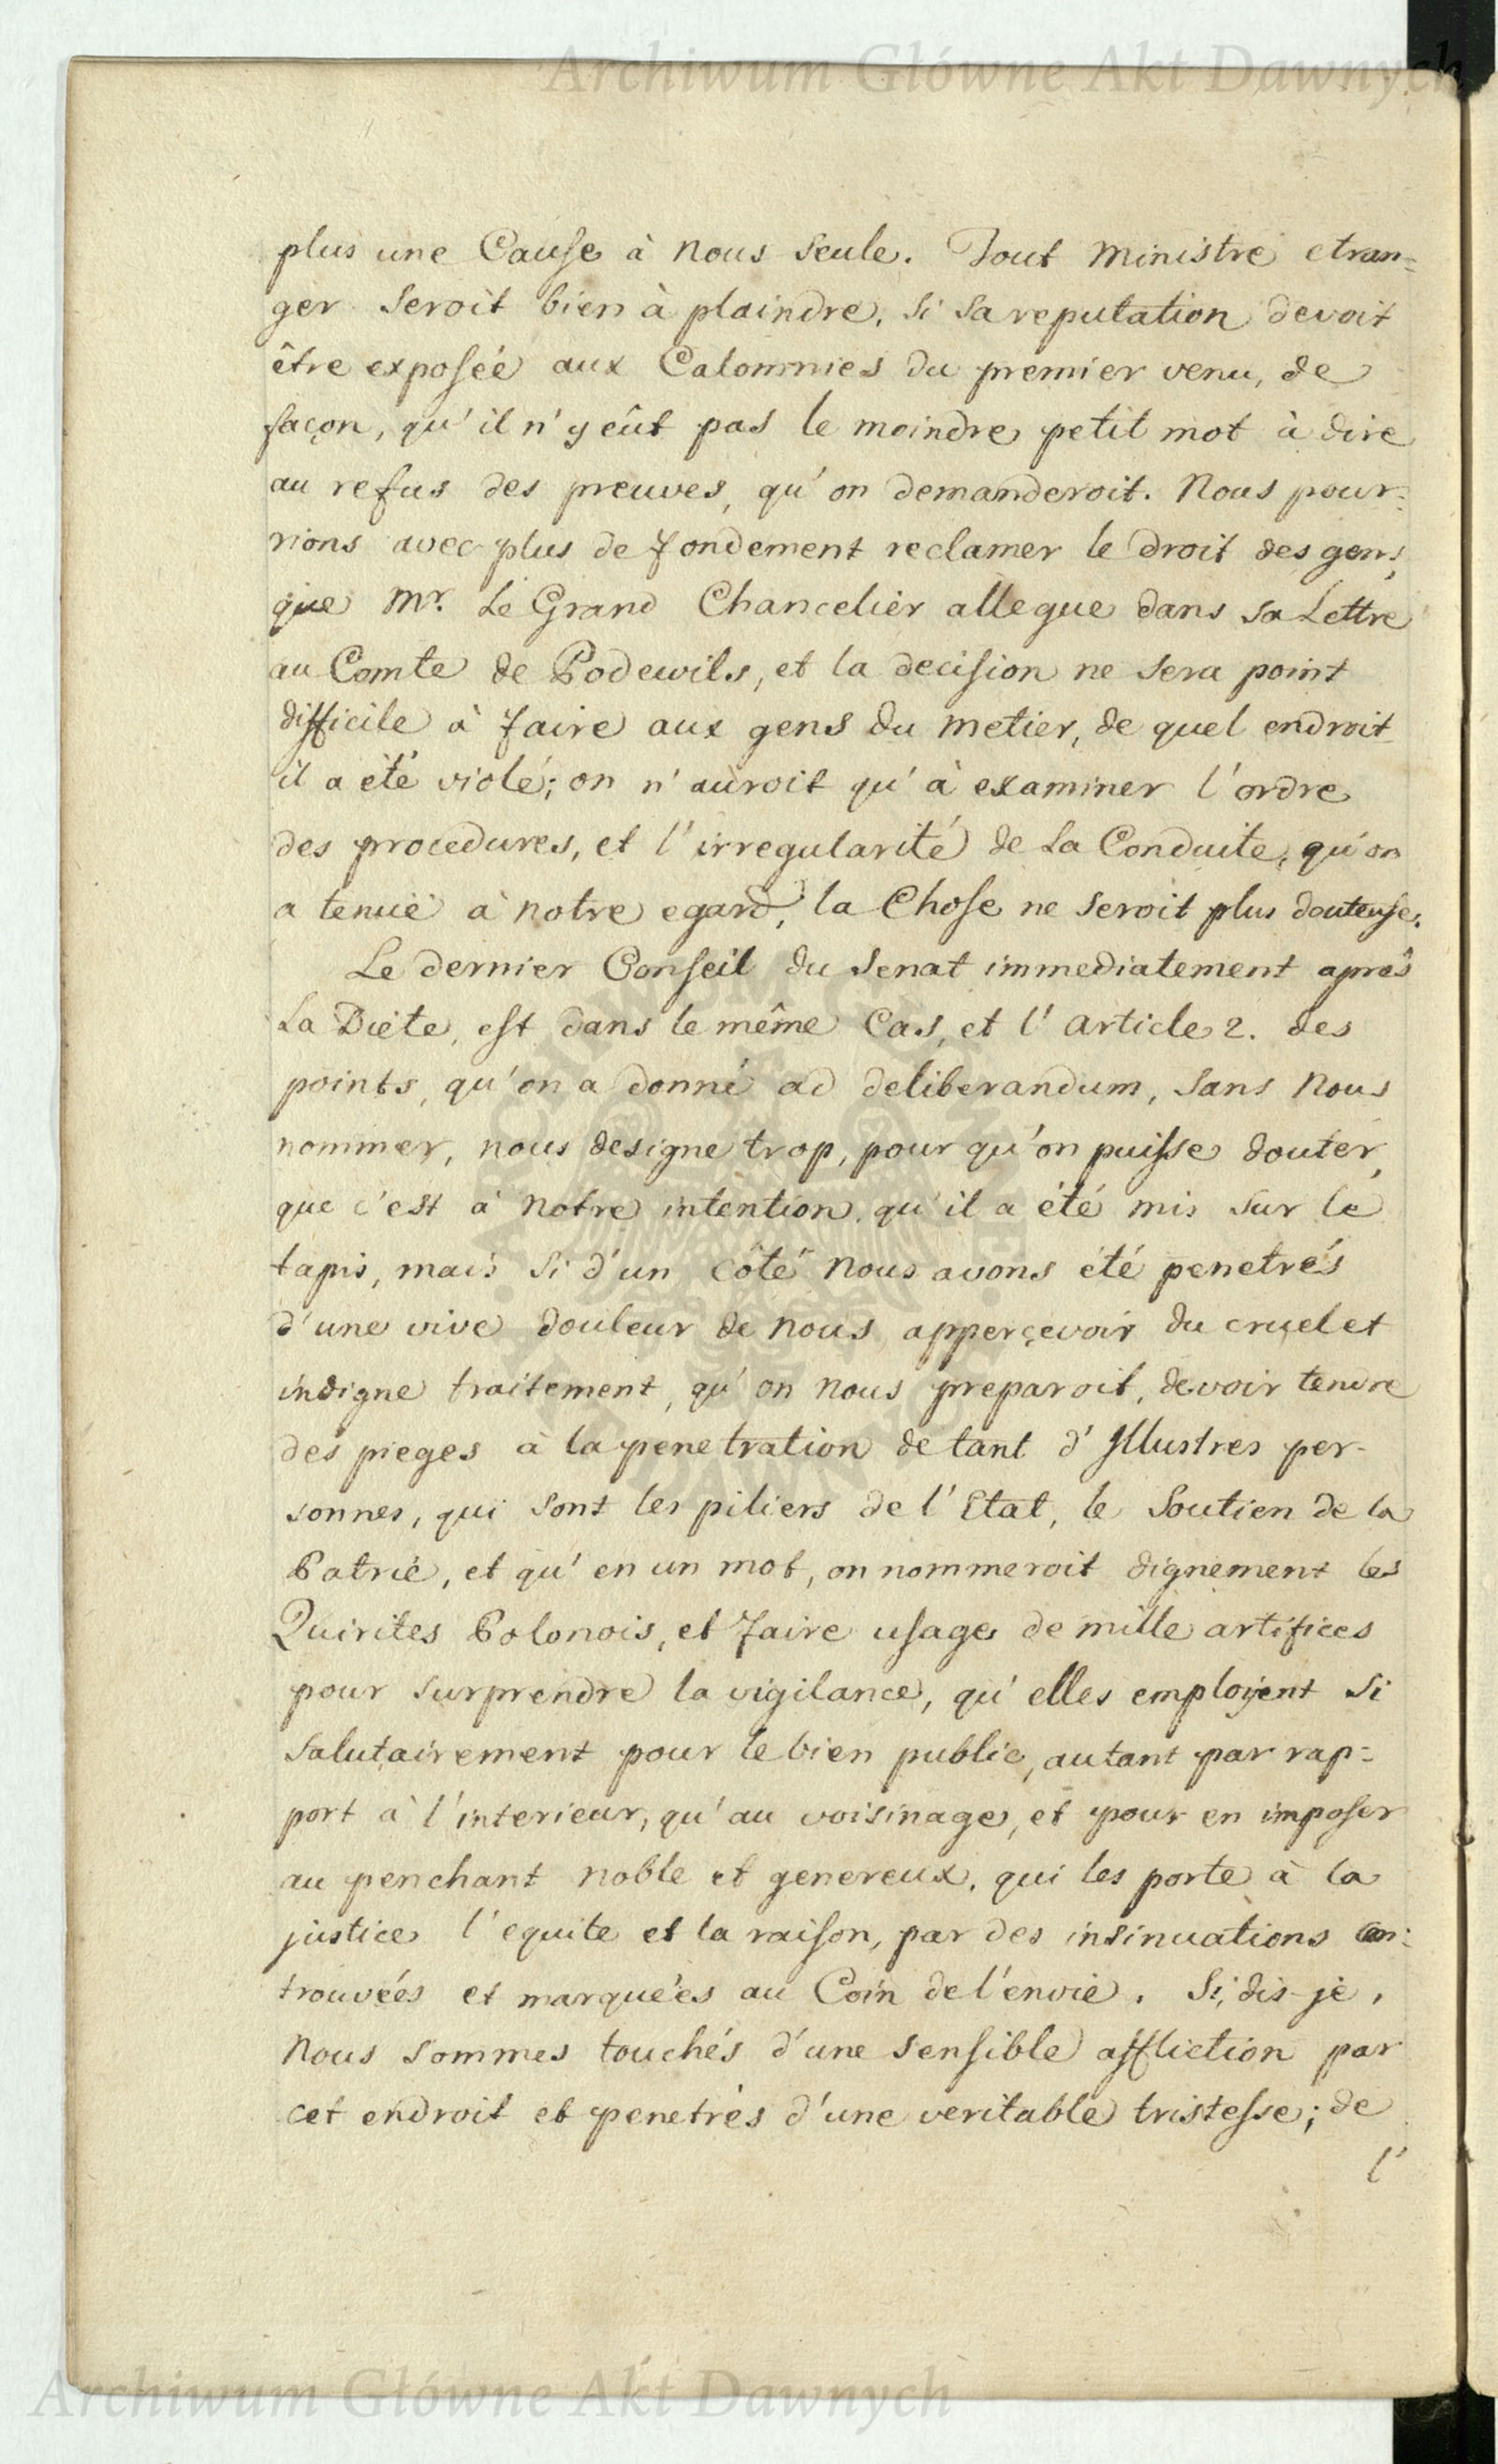 Archiwum Główne Akt Dawnych
plus une Cause à nous seule. Tout Ministre etran=
ger seroit bien à plaindre, si sa reputation devoit
être exposée aux Calomnies du premier venu, de
façon, qu'il n'y eût pas le moindre petit mot à dire
au refus des preuves, qu'on demanderoit. Nous pour=
rions avec plus de fondement reclamer le droit des gens,
que Mr. Le Grand Chancelier allegue dans sa Lettre
au Comte de Podewils, et la decision ne sera point
difficile à faire aux gens du metier, de quel endroit
il a été violé; on n'auroit qu'à examiner l'ordre
des procedures, et l'irregularité de la Conduite, qu'on
a tenuë à notre egard, la Chose ne seroit plus douteuse.
Le dernier Conseil du Senat immediatement après
La Diète, est dans le même Cas, et l'Article 2. des
points, qu'on a donné ad deliberandum, sans nous
nommer, nous designe trop, pour qu'on puisse douter,
que c'est à notre intention, qu'il a été mis sur le
tapis, mais si d'un côté nous avons été penetrés
d'une vive douleur de nous apperçevoir du cruel et
indigne traitement, qu'on nous preparoit, devoir tendre
des pieges à la penetration de tant d'Illustres per-
sonnes, qui sont les piliers de l'Etat, le Soutien de la
Patrie, et qu'en un mot, on nommeroit dignement les
Quirites Polonois, et faire usage de mille artifices
pour surprendre la vigilance, qu'elles employent si
salutairement pour le bien public, autant par rap=
port à l'interieur, qu'au voisinage, et pour en imposer
au penchant noble et genereux, qui les porte à la
justice l'equite et la raison, par des insinuations con=
trouvées et marquées au Coin de l'envie. Si, dis-je,
nous sommes touchés d'une sensible affliction par
cet endroit et penetrés d'une veritable tristesse; de
l'
Archiwum Główne Akt Dawnych